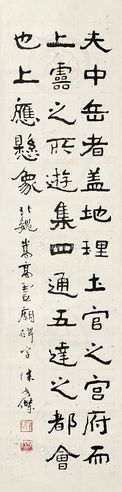 夫中岳者盖地理土官之宫府而
上靈之所遊集四通五達之都會
也上應懸象
北魏嵩高靈廟碑字